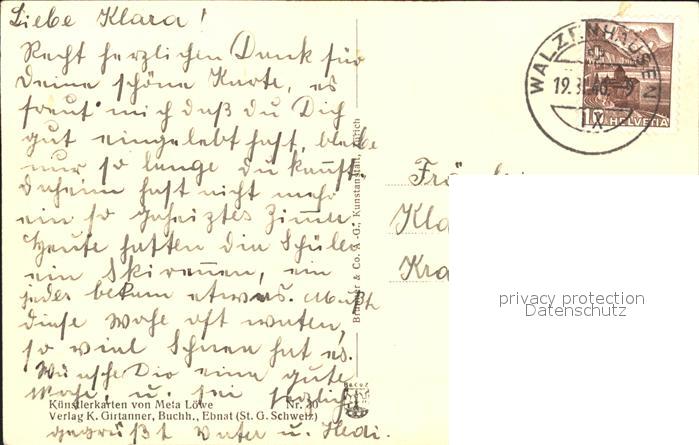 Liebe Klara!
Recht herzlichen Dank für
Deine schöne Karte, es
freut mich daß du Dich
gut eingelebt hast, bleibe
nur so lange du kannst.
daheim hast nicht mehr
ein so geheiztes Zimmer
Heute hatten die Schüler
ein Skirennen, ein
jedes bekam etwas. Mußt
diese Woche oft waten,
so viel Schnee hat es.
Wünsche Dir eine gute
Woche, u. sei herzlich
gegrüßt Vater u. Hedi.
Künstlerkarten von Meta Löwe Nr. 20
Verlag K. Girtanner, Buchh., Ebnat (St. G. Schweiz)
& Co. A.-G., Kunstanstalt, Zürich
WALZENHAUSEN
IX
10 HELVETIA
privacy protection
Datenschutz